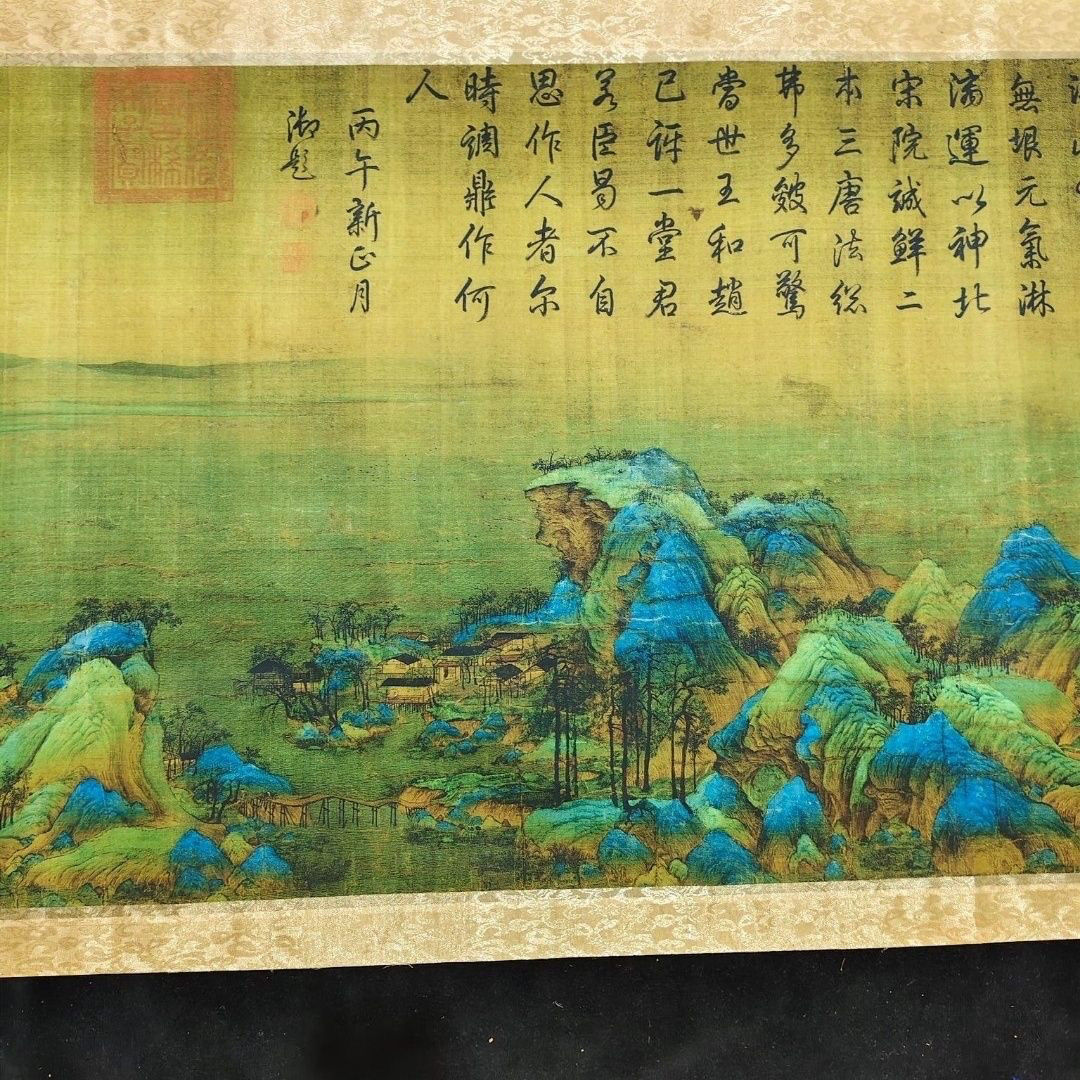 無垠元氣淋
漓運以神北
宋院誠鮮二
本三唐法總
弗多皴可驚
當世王和趙
已訝一堂君
若臣曷不自
思作人者尔
時調鼎作何
人
丙午新正月
御題